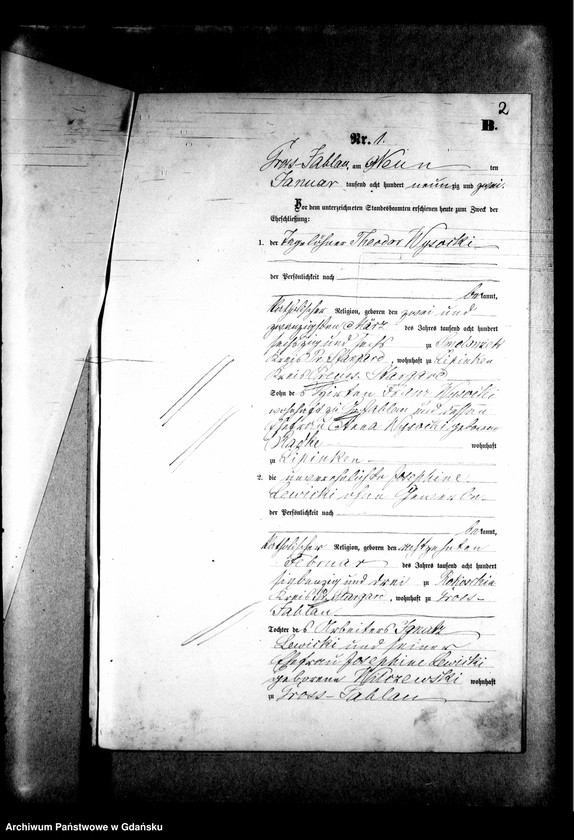 2
B.
Nr. 1.
Gross-Jablau, am Neun ten
Januar tausend acht hundert neunzig und zwei.
Vor dem unterzeichneten Standesbeamten erschienen heute zum Zweck der
Eheschließung:
1. der Tagelöhner Theodor Wysocki
der Persönlichkeit nach
be kannt,
katholischer Religion, geboren den zwei und
zwanzigsten März des Jahres tausend acht hundert
sechszig und sechs zu
Kreis Pr. Stargard, wohnhaft zu Lipinken
Kreis Preuss. Stargard
Sohn des Hirten Franz Wysocki
wohnhaft zu Gr. Jablau und dessen
Ehefrau Anna Wysocki geborene
Radke wohnhaft
zu Lipinken
2. die unverehelichte Josephine
Lewicki ohne Gewerbe
der Persönlichkeit nach
be kannt,
katholischer Religion, geboren den
Februar des Jahres tausend acht hundert
siebenzig und drei zu Kokoschken
Kreis Pr. Stargard, wohnhaft zu Gross-
Jablau
Tochter des Arbeiters Ignatz
Lewicki und seiner
Ehefrau Josephine Lewicki
geborene Wilczewski wohnhaft
zu Gross-Jablau
Archiwum Państwowe w Gdańsku